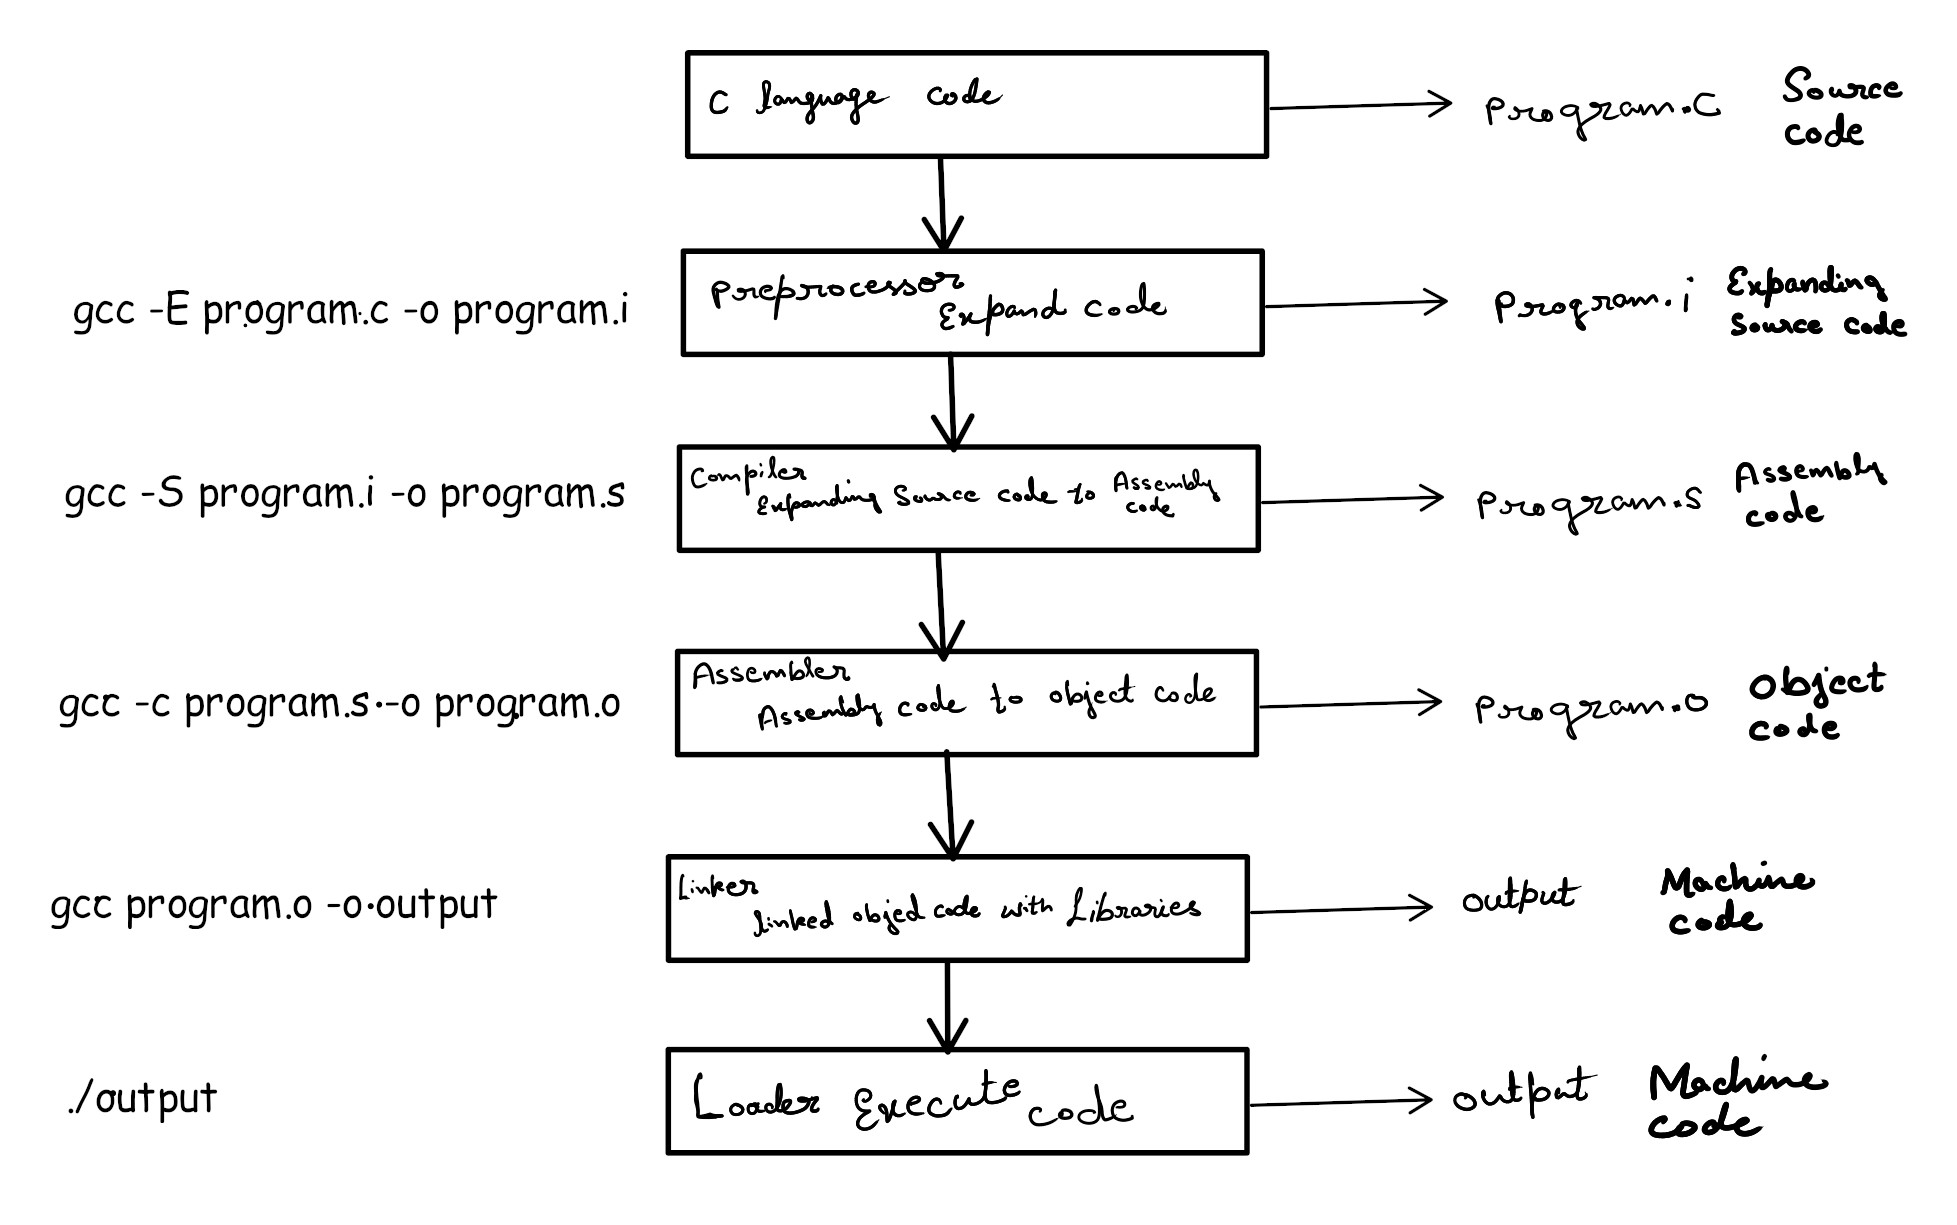 C language code
program.c
Source
code
gcc -E program.c -o program.i
Preprocessor
Expand code
program.i
Expanding
Source code
gcc -S program.i -o program.s
Compiler
Expanding Source code to Assembly
code
program.s
Assembly
code
gcc -c program.s -o program.o
Assembler
Assembly code to object code
program.o
Object
code
gcc program.o -o output
Linker
linked objed code with Libraries
output
Machine
code
./output
Loader Execute code
output
Machine
code